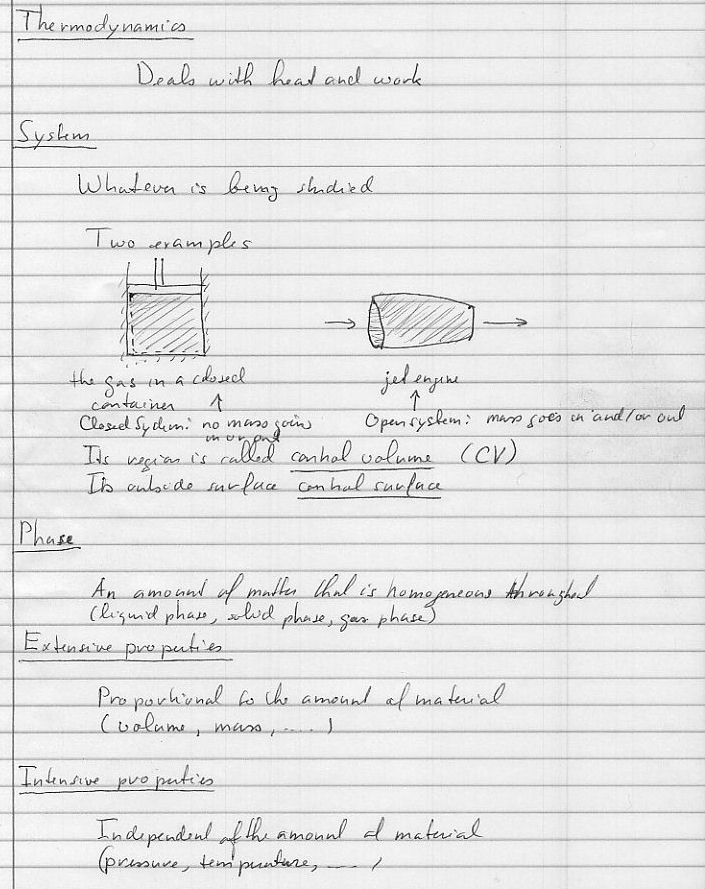 Thermodynamics
Deals with heat and work
System
Whatever is being studied
Two examples
the gas in a closed
container
jet engine
Closed System: no mass goes
in or out
Open system: mass goes in and/or out
Its region is called control volume (CV)
Its outside surface control surface
Phase
An amount of matter that is homogeneous throughout
(liquid phase, solid phase, gas phase)
Extensive properties
Proportional to the amount of material
(volume, mass, .... )
Intensive properties
Independent of the amount of material
(pressure, temperature, .... )